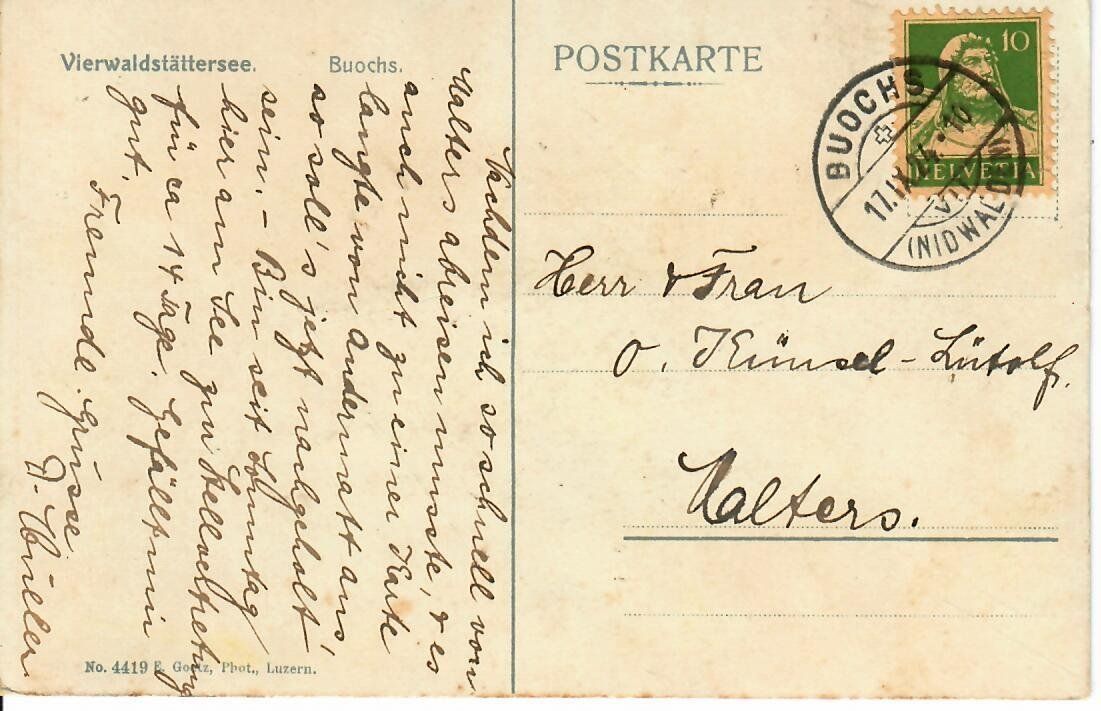 Vierwaldstättersee. Buochs.
POSTKARTE
10
HELVETIA
BUOCHS
17.II.24.-10
VIII
(NIDWALDEN)
Nachdem ich so schnell von
Malters abreisen musste, & es
auch nicht zu einer Karte
langte von Andermatt aus,
so soll's jetzt nachgeholt
sein. – Bin seit Sonntag
hier am See zur Stellvertretung
für ca 14 Tage. Gefällt mir
gut.
Freundl. Grüsse
Müller
Herr & Frau
O. Künsel-Lütolf.
Malters.
No. 4419 E. Goetz, Phot., Luzern.